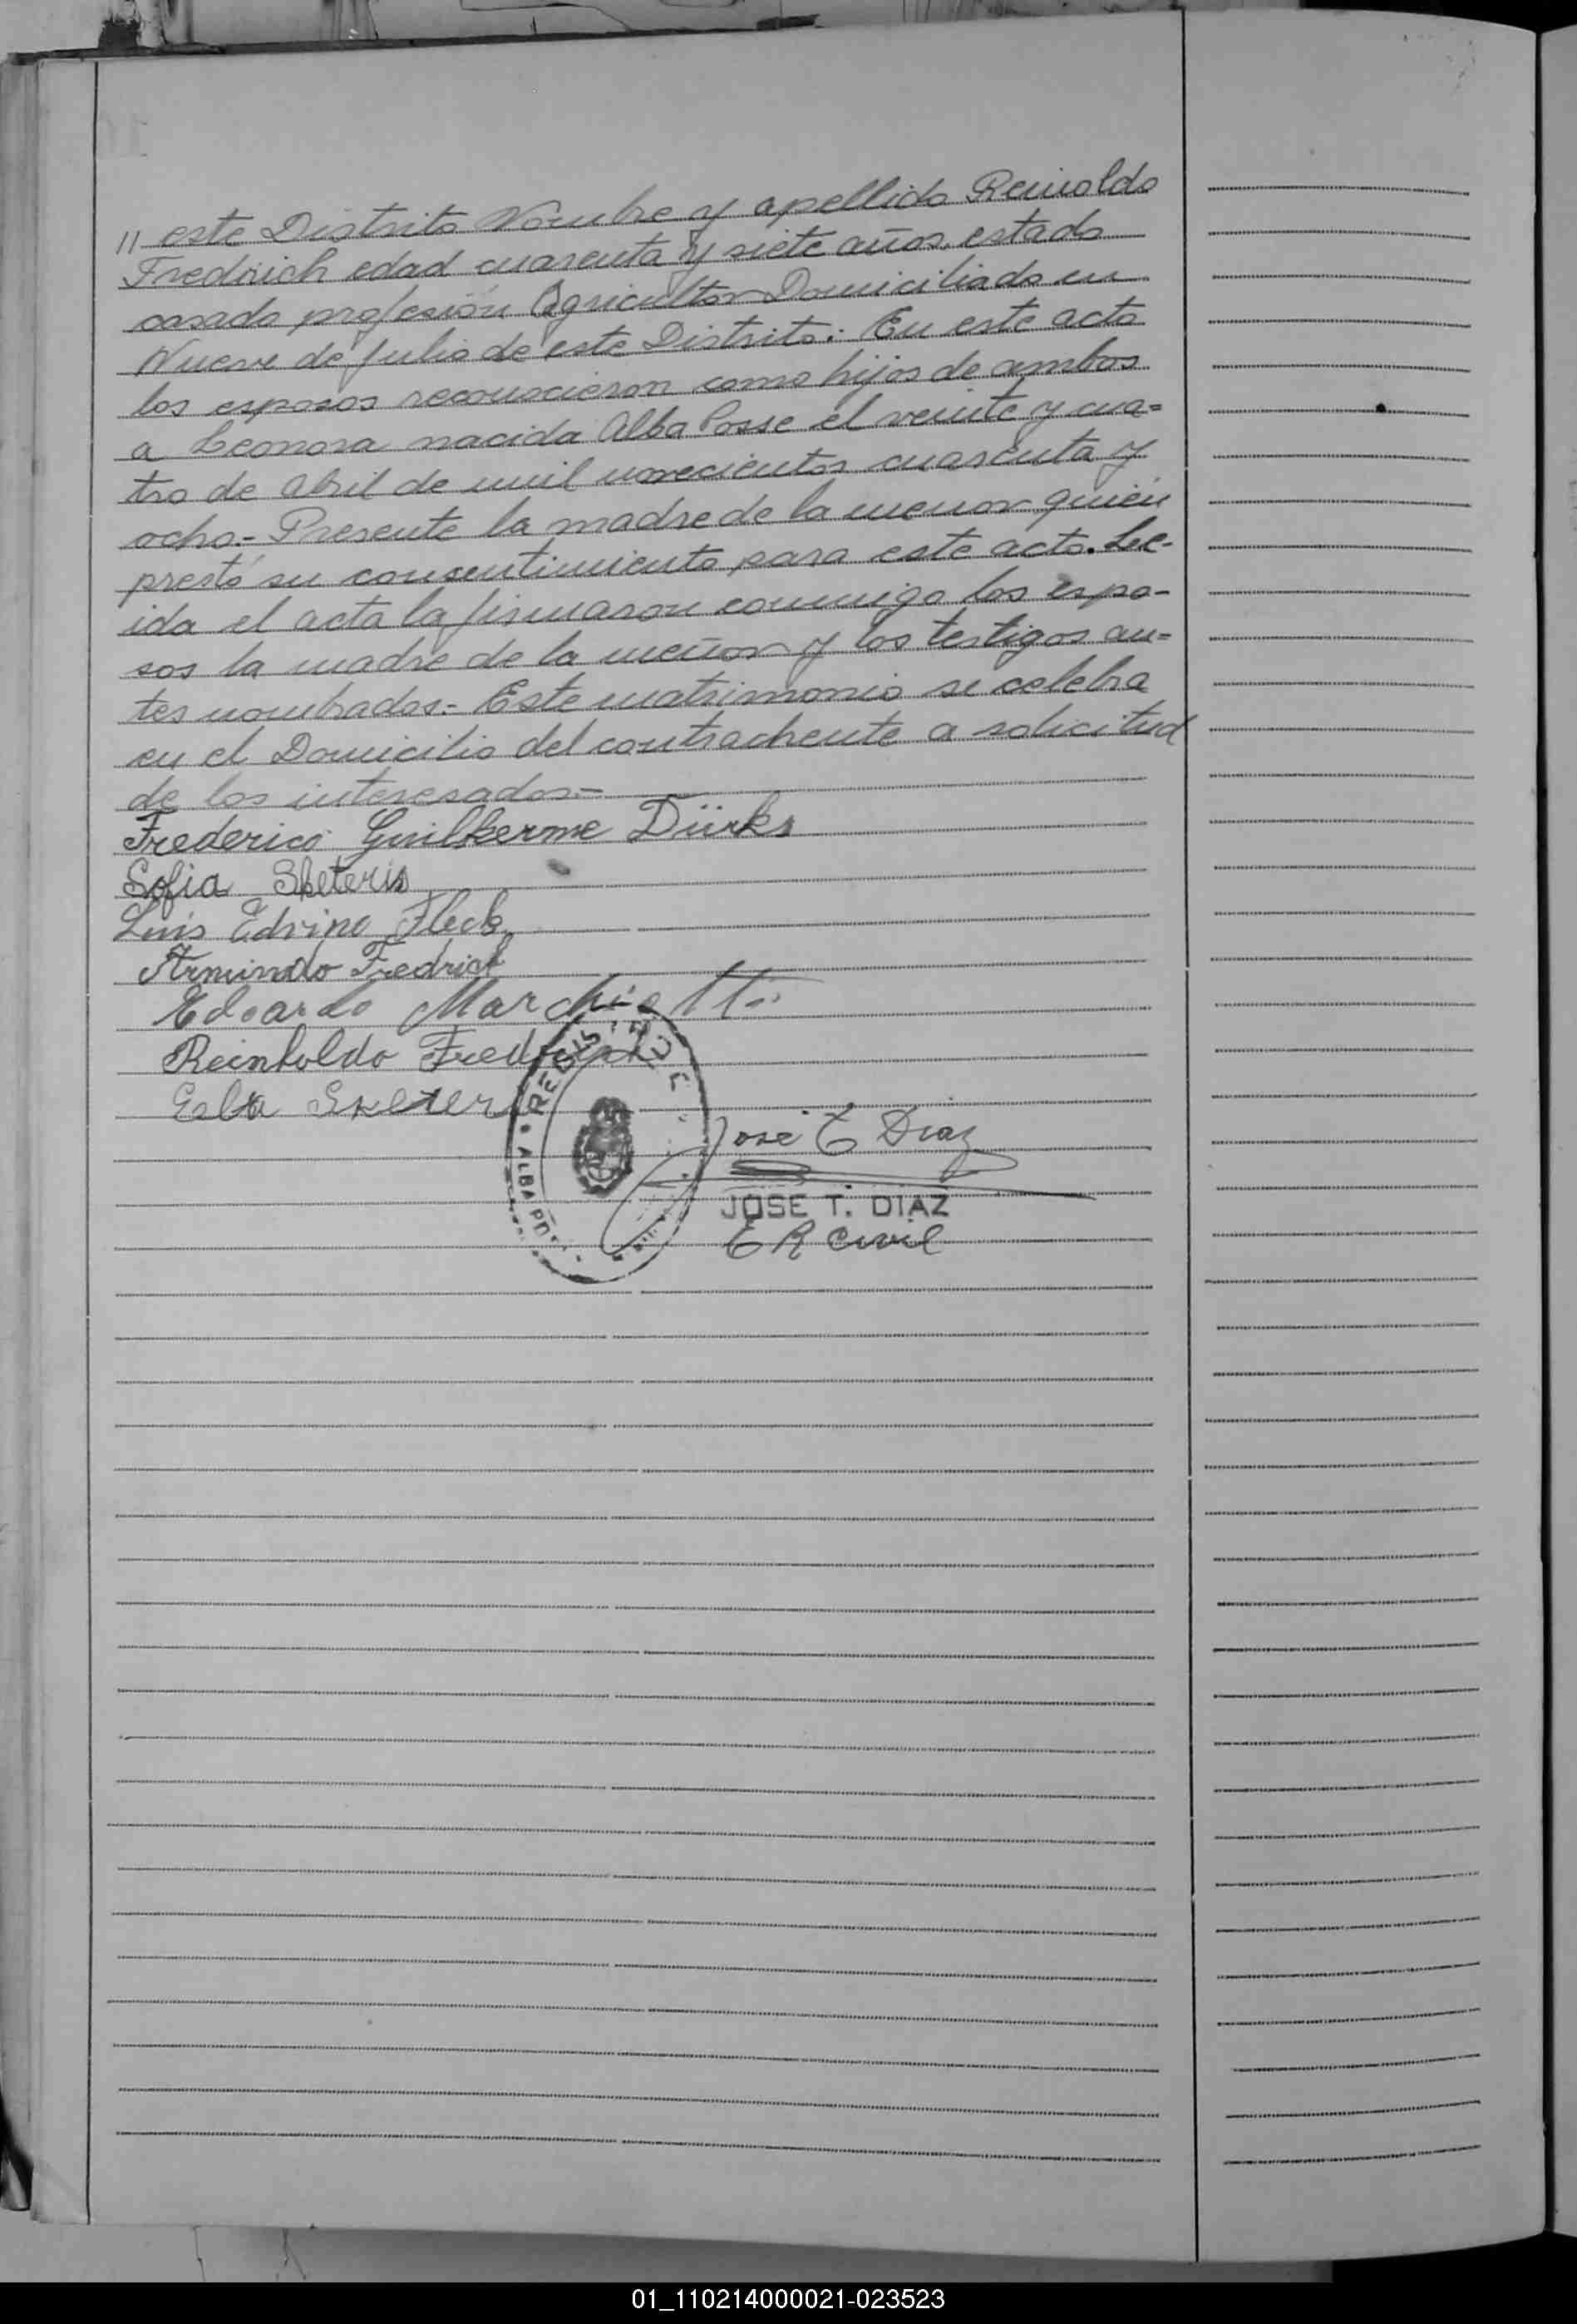 // este Distrito Nombre y apellido Reinoldo
Fredrich edad cuarenta y siete años, estado
casado profesión Agricultor Domiciliado en
Nueve de Julio de este Distrito: En este acto
los esposos reconocieron como hijos de ambos
a Leonora nacida Alba Posse el veinte y cua=
tro de Abril de mil novecientos cuarenta y
ocho.- Presente la madre de la menor quién
prestó su consentimiento para este acto. Le-
ida el acta la firmaron conmigo los espo-
sos la madre de la menor y los testigos an=
tes nombrados.- Este matrimonio se celebra
en el Domicilio del contrachente a solicitud
de los interesados.-
Frederico Guilherme Dürks
Sofia Sketeris
Luis Edvino Fleck
Armindo Fredrich
Edoardo Marchiotti
Reinholdo Fredrich
REGIS
ALBA PO
Jose T Diaz
JOSE T. DIAZ
E R Civil
01_110214000021-023523